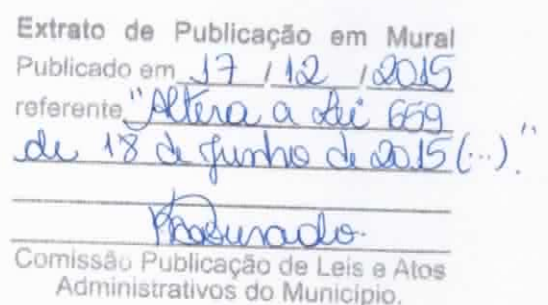 Extrato de Publicação em Mural
Publicado em 17 / 12 / 2015
referente "Altera a Lei 659
de 18 de Junho de 2015 (...)."
Comissão Publicação de Leis e Atos
Administrativos do Município.